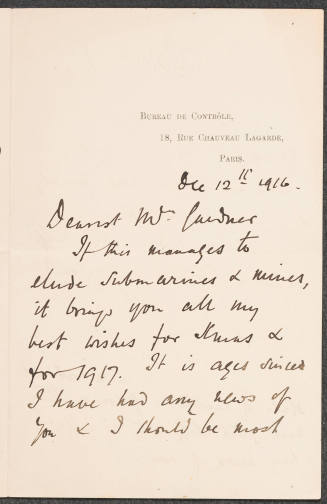 Bureau de Contrôle,
18, Rue Chauveau Lagarde,
Paris.
Dec 12th 1916.
Dearest Mrs. Gardner
If this manages to
elude submarines & mines,
it brings you all my
best wishes for Xmas &
for 1917. It is ages since
I have had any news of
you & I should be most